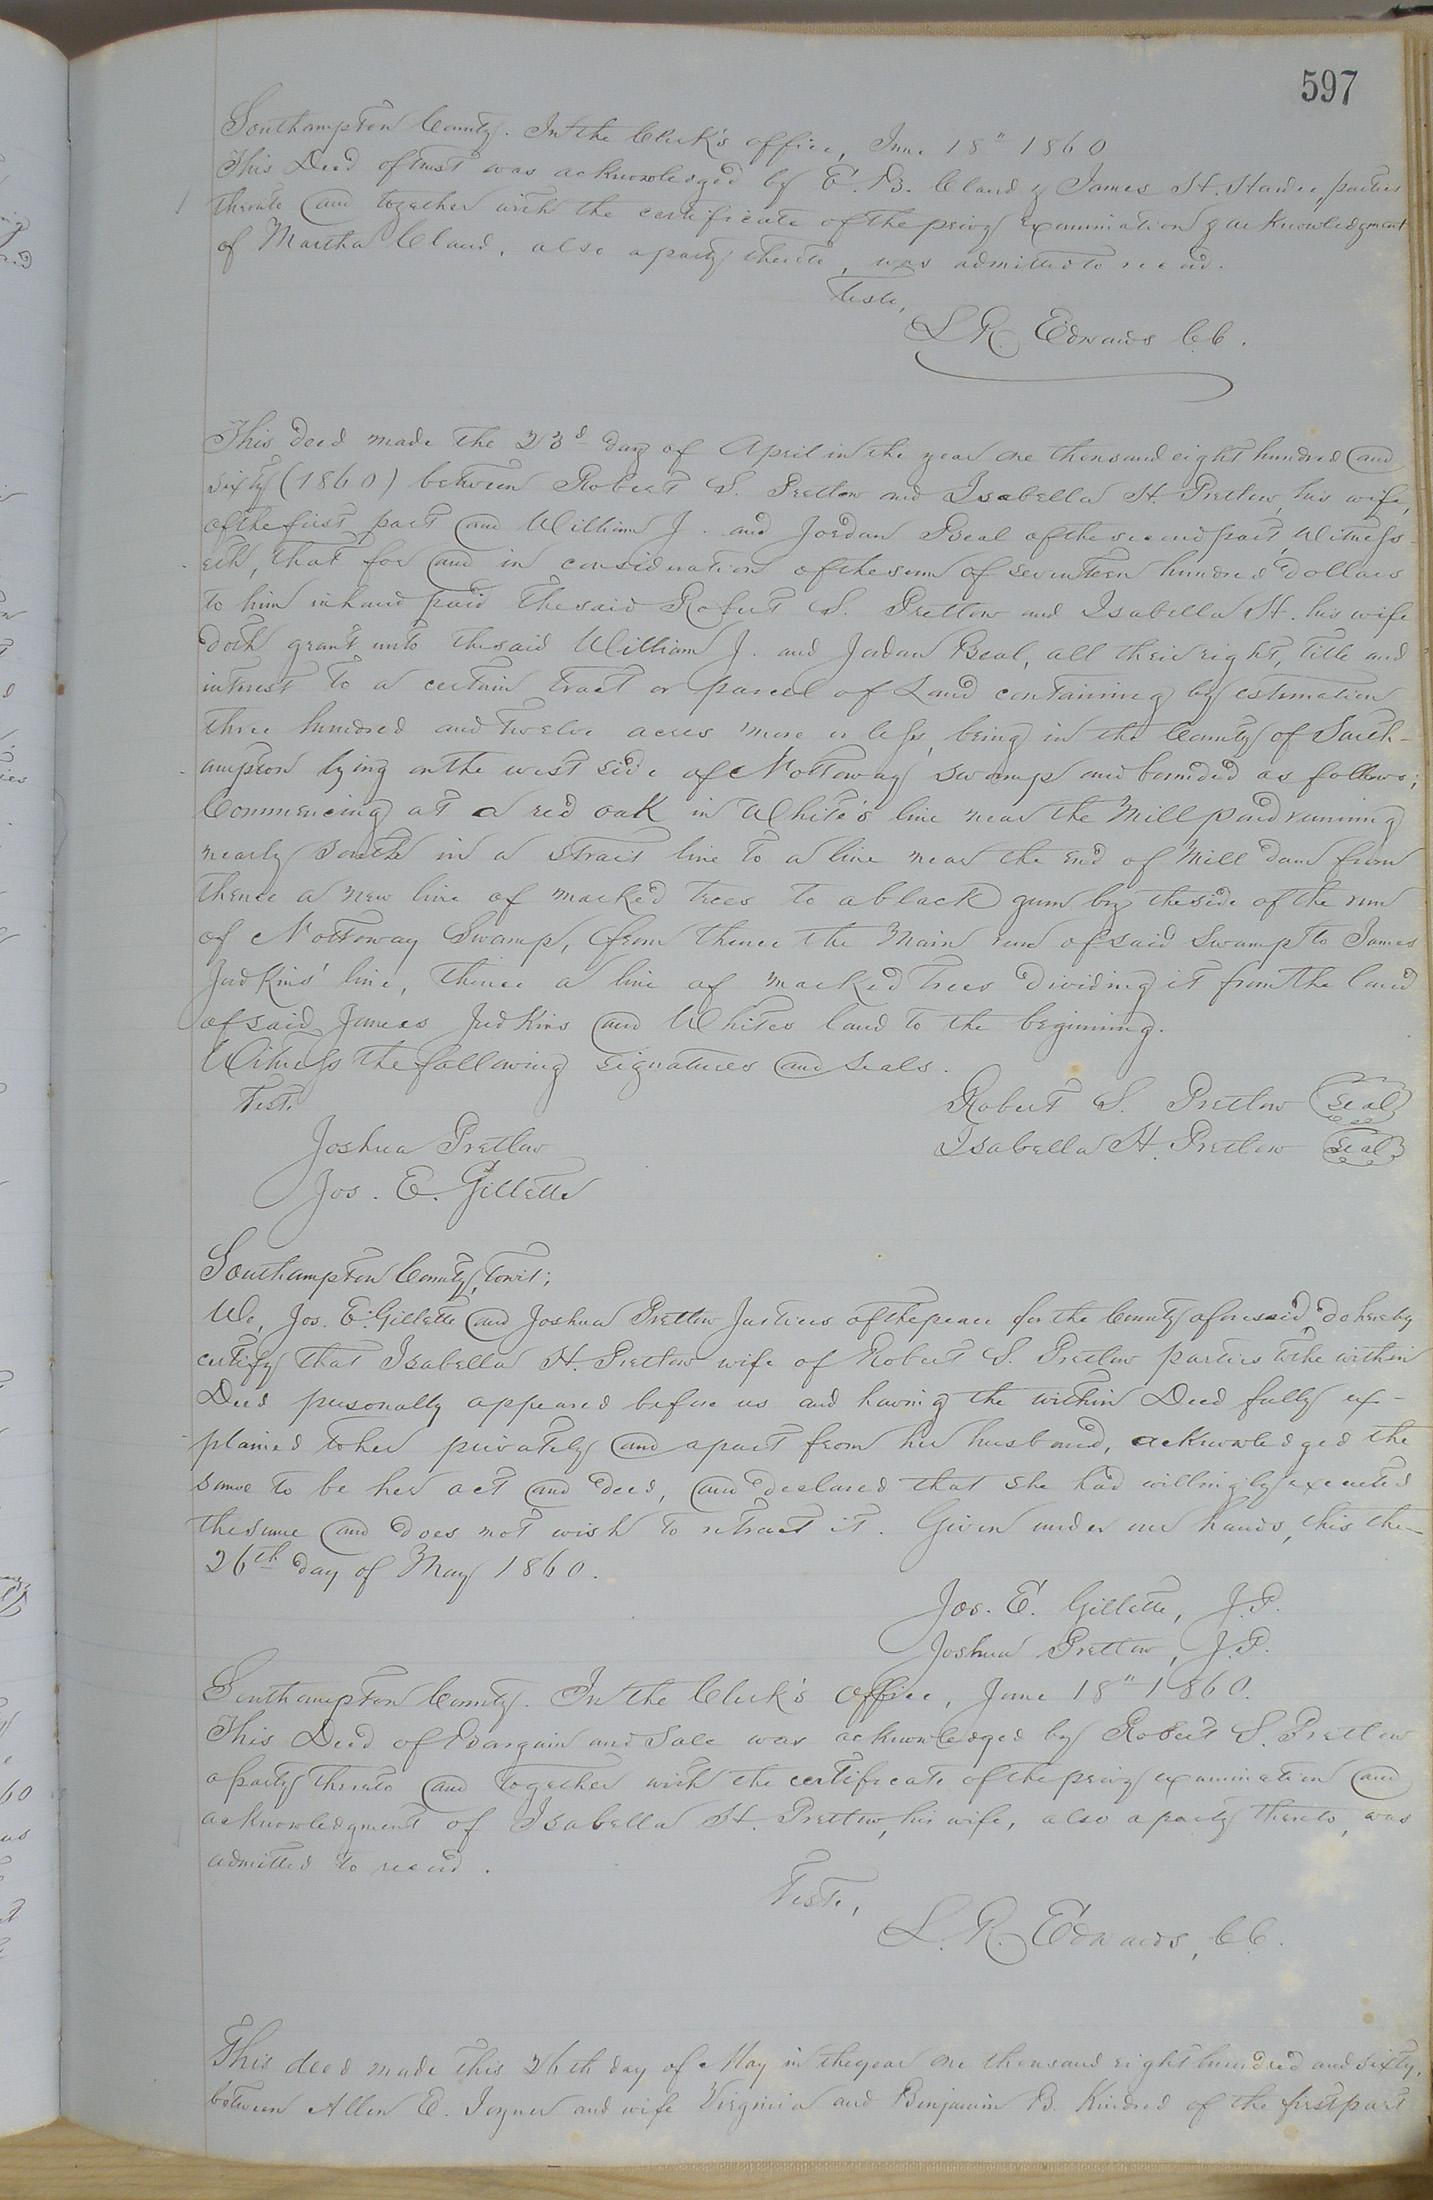 597
Southampton County. In the Clerk's office, June 18" 1860
This Deed of trust was acknowledged by E. B. Claud & James H. Hardee, parties
thereto and together with the certificate of the privy examination & acknowledgment
of Martha Claud, also a party thereto, was admitted to record.
Teste,
L R. Edwards CC.
This deed made the 23d day of April in the year one thousand eight hundred and
sixty (1860) between Robert S. Pretlow and Isabella H. Pretlow, his wife,
of the first part and William J. and Jordan Beal of the second part, Witness-
eth, that for and in consideration of the sum of seventeen hundred dollars
to him in hand paid the said Robert S. Pretlow and Isabella H. his wife
doth grant unto the said William J. and Jordan Beal, all their right, title and
interest to a certain tract or parcel of Land containing by estimation
three hundred and twelve acres more or less, being in the County of South-
ampton lying on the west side of Nottoway Swamp and bounded as follows;
Commencing at a red oak in White's line near the Mill pond running
nearly South in a strait line to a line near the end of Mill dam from
thence a new line of marked trees to a black gum by the side of the run
of Nottoway Swamp, from thence the Main run of said Swamp to James
Judkins' line, thence a line of marked trees dividing it from the land
of said James Judkins and Whites land to the beginning.
Witness the following signatures and seals.
Test.
Robert S. Pretlow Seal
Joshua Pretlow
Isabella H. Pretlow Seal
Jos. E. Gillette
Southampton County, towit;
We, Jos. E. Gillette and Joshua Pretlow Justices of the peace for the County aforesaid, do hereby
certify that Isabella H. Pretlow wife of Robert S. Pretlow parties to the within
Deed personally appeared before us and having the within Deed fully ex-
plained to her privately and apart from her husband, acknowledged the
same to be her act and deed, and declared that she had willingly executed
the same and does not wish to retract it. Given under our hands, this the
26th day of May 1860.
Jos. E. Gillette, J.P.
Joshua Pretlow, J.P.
Southampton County. In the Clerk's office, June 18" 1860.
This Deed of Bargain and Sale was acknowledged by Robert S. Pretlow
a party thereto and together with the certificate of the privy examination and
acknowledgment of Isabella H. Pretlow, his wife, also a party thereto, was
admitted to record.
Teste,
L. R. Edwards, CC.
This deed made this 26th day of May in the year one thousand eight hundred and sixty,
between Allen E. Joyner and wife Virginia and Benjamin B. Kindred of the first part